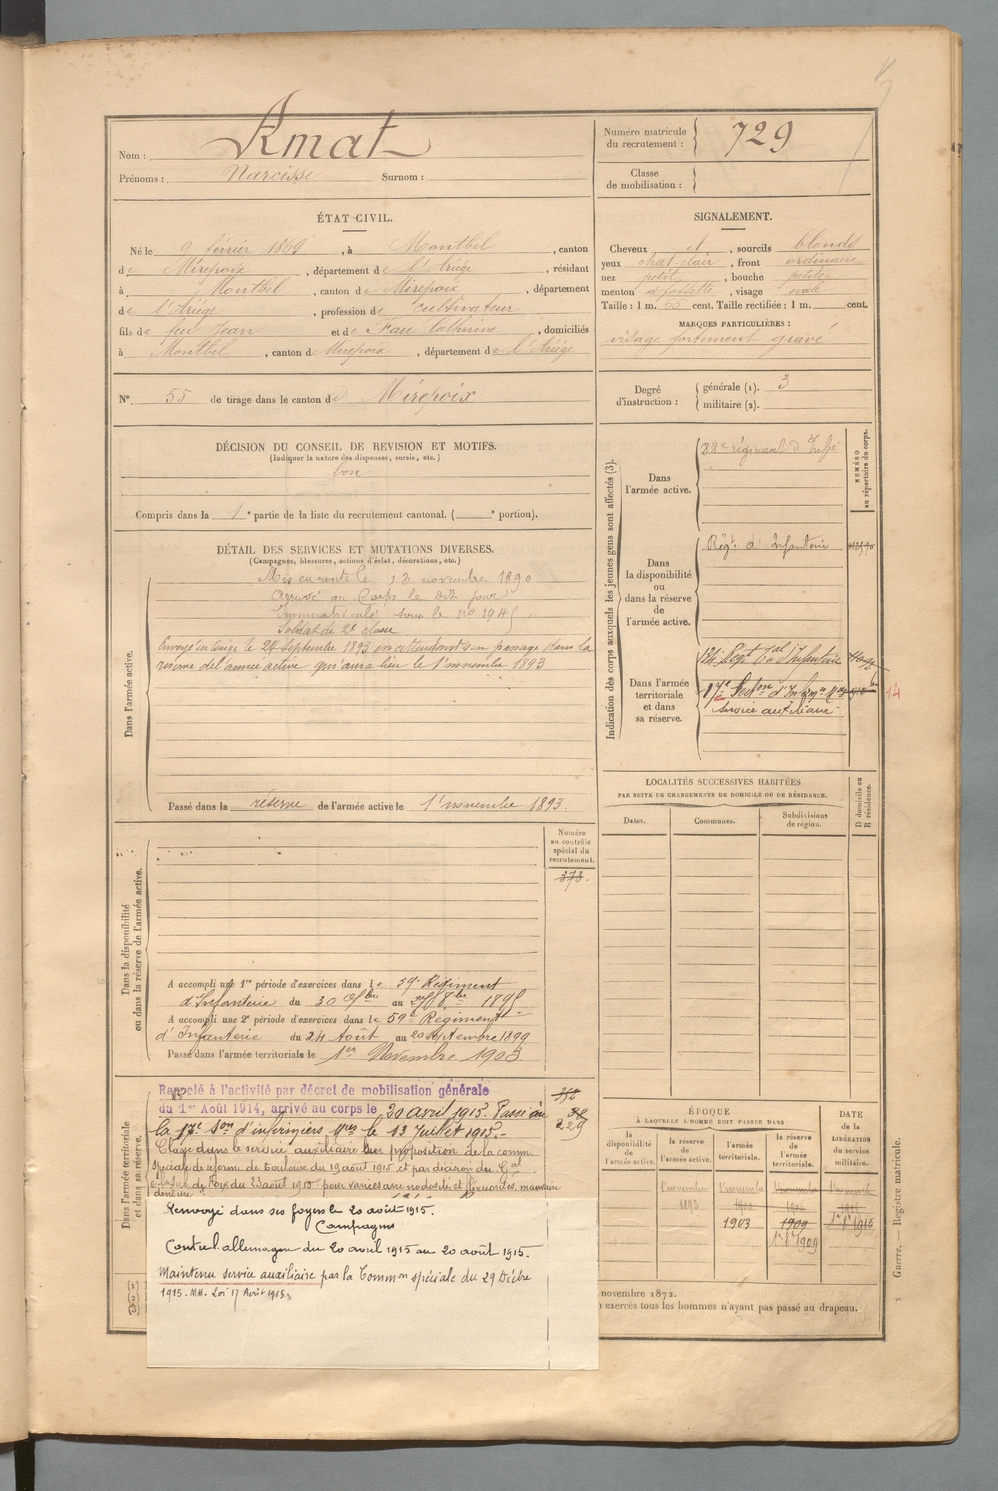 Nom : Amat
Prénoms : Narcisse Surnom :
Numéro matricule du recrutement : 729
Classe de mobilisation :
ÉTAT CIVIL.
Né le 9 février 1869, à Montbel, canton
de Mirepoix, département de l'Ariège, résidant
à Montbel, canton de Mirepoix, département
de l'Ariège, profession de cultivateur
fils de feu Jean et de Fau Catherine, domiciliés
à Montbel, canton de Mirepoix, département de l'Ariège
SIGNALEMENT.
Cheveux et, sourcils blonds
yeux chat. clair, front ordinaire
nez petit, bouche petite
menton à fossette, visage ovale
Taille : 1 m. 65 cent. Taille rectifiée : 1 m. cent.
MARQUES PARTICULIÈRES :
visage fortement gravé
N° 55 de tirage dans le canton de Mirepoix
Degré d'instruction : générale (1). 3
militaire (2).
DÉCISION DU CONSEIL DE REVISION ET MOTIFS.
(Indiquer la nature des dispenses, sursis, etc.)
bon
Compris dans la 1e partie de la liste du recrutement cantonal. ( e portion).
DÉTAIL DES SERVICES ET MUTATIONS DIVERSES.
(Campagnes, blessures, actions d'éclat, décorations, etc.)
Dans l'armée active.
Mis en route le 13 novembre 1890
Arrivé au Corps le dit jour
Immatriculé sous le no
Soldat de 2e classe
Envoyé en congé le 24 septembre 1893 en attendant son passage dans la
réserve de l'armée active qui aura lieu le 1er novembre 1893
Passé dans la réserve de l'armée active le 1er novembre 1893.
Indication des corps auxquels les jeunes gens sont affectés (3).
NUMÉRO au répertoire du corps.
Dans l'armée active.
88e régiment d'Infie
Dans la disponibilité ou dans la réserve de l'armée active.
Régt d'Infanterie
Dans l'armée territoriale et dans sa réserve.
Regt Tal d'Infanterie
17e Section d'Infirm. Mres
Service auxiliaire
14
LOCALITÉS SUCCESSIVES HABITÉES
PAR SUITE DE CHANGEMENTS DE DOMICILE OU DE RÉSIDENCE.
Dates. Communes. Subdivisions de région. D domicile ou R résidence.
Dans la disponibilité ou dans la réserve de l'armée active.
Numéro au contrôle spécial du recrutement.
373.
A accompli une 1re période d'exercices dans le 59e Régiment
d'Infanterie du 30 au 8bre 1895
A accompli une 2e période d'exercices dans le 59e Régiment
d'Infanterie du 24 Août au 20 septembre 1899
Passé dans l'armée territoriale le 1er Novembre 1903
Dans l'armée territoriale et dans sa réserve.
Rappelé à l'activité par décret de mobilisation générale
du 1er Août 1914, arrivé au corps le 20 avril 1915. Passé à
la 17e Son d'infirmiers Mres le 13 Juillet 1915.
Classé dans le service auxiliaire sur proposition de la comm.
spéciale de réforme de Toulouse du 19 août 1915 et par décision du Gal
de Foix du 23 août 1915 pour varices avec nodosités et flexuosités, mauvaise
denture
229
Renvoyé dans ses foyers le 20 août 1915.
Campagnes
Contre l'allemagne du 20 avril 1915 au 20 août 1915.
Maintenu service auxiliaire par la Common spéciale du 29 Décbre
1915. MM. Loi 17 Août 1915.
ÉPOQUE
À LAQUELLE L'HOMME DOIT PASSER DANS
la disponibilité de l'armée active. la réserve de l'armée active. l'armée territoriale. la réserve de l'armée territoriale. DATE de la LIBÉRATION du service militaire.
1er novembre 1893
1er novembre 1903
1909
1er 8bre 1909
novembre 1872.
exercés tous les hommes n'ayant pas passé au drapeau.
Guerre. — Registre matricule.